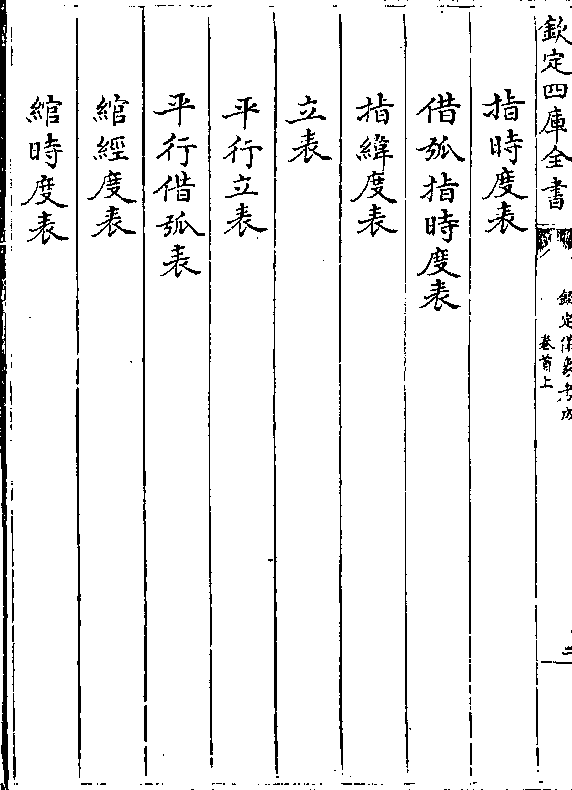 欽定四庫全書
欽定儀象考成
卷首上
指時度表
借弧指時度表
指緯度表
立表
平行立表
平行借弧表
綰經度表
綰時度表